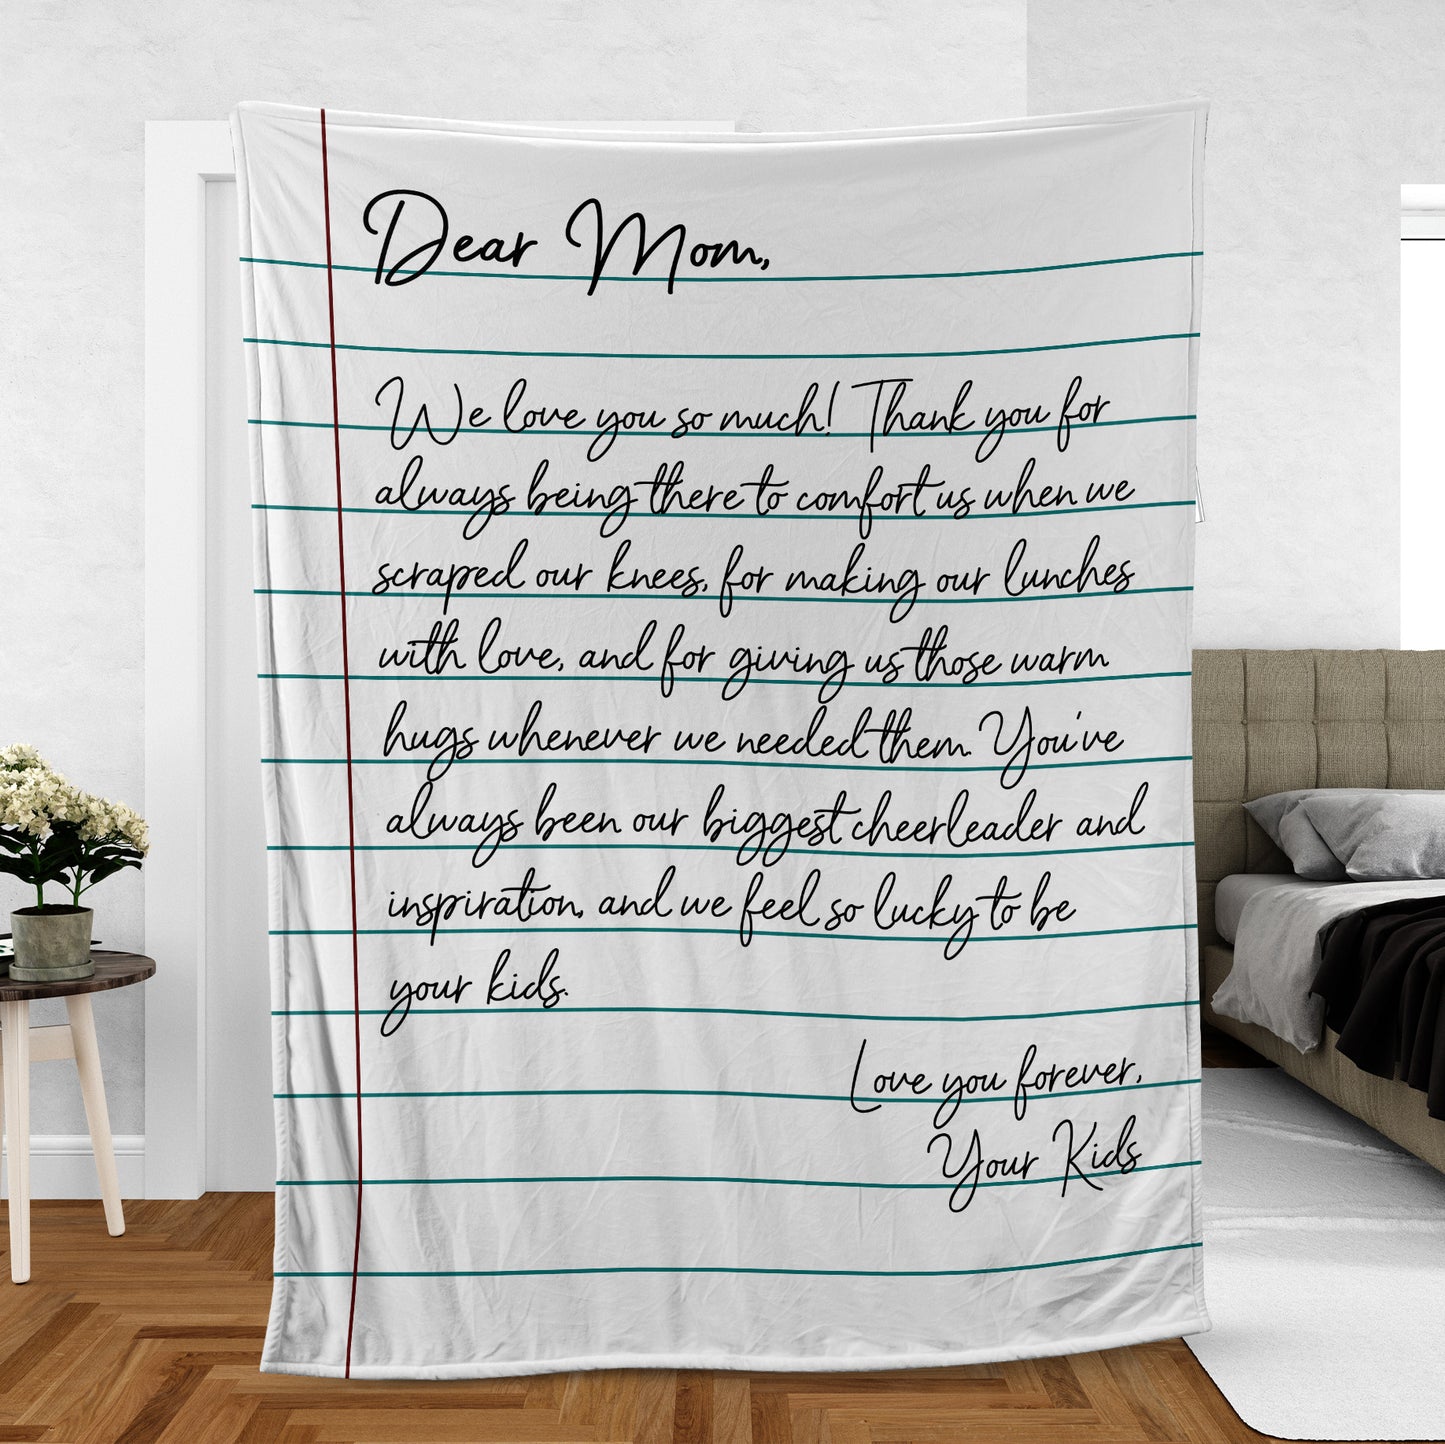 Dear Mom,
We love you so much! Thank you for
always being there to comfort us when we
scraped our knees, for making our lunches
with love, and for giving us those warm
hugs whenever we needed them. You've
always been our biggest cheerleader and
inspiration, and we feel so lucky to be
your kids.
Love you forever,
Your Kids